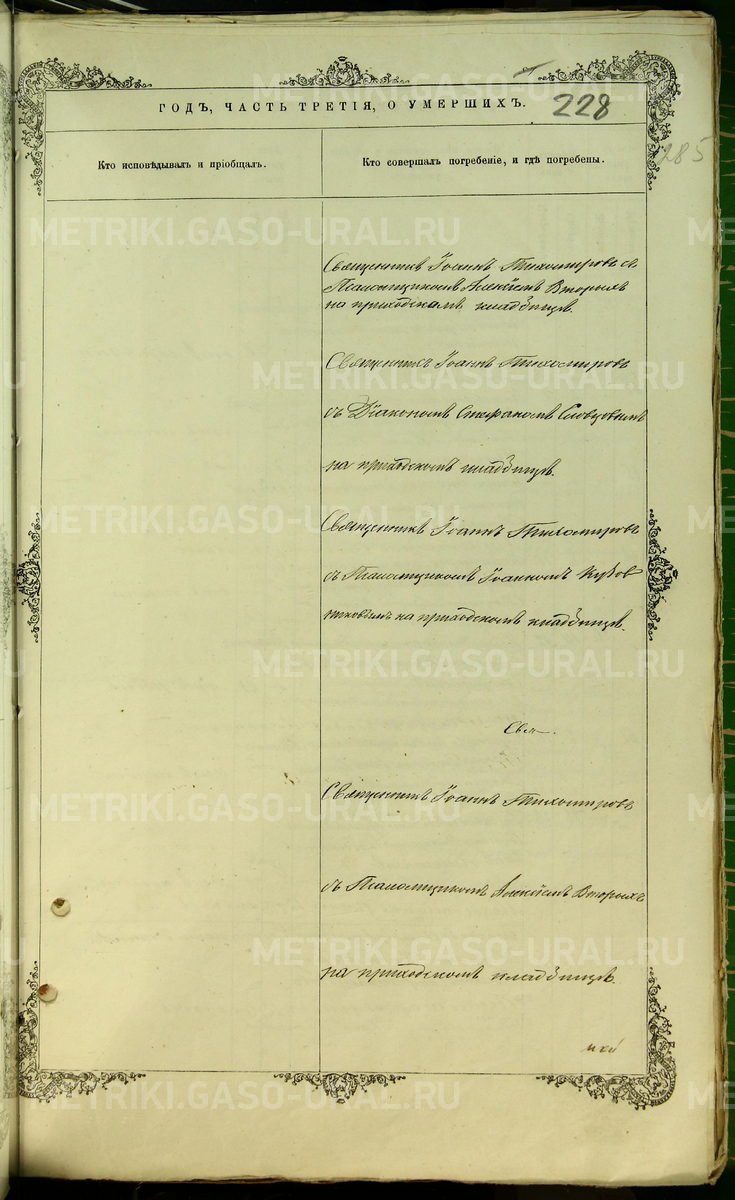 ГОДЪ, ЧАСТЬ ТРЕТІЯ, О УМЕРШИХЪ.
228
285
Кто исповѣдывалъ и пріобщалъ.
Кто совершалъ погребеніе, и гдѣ погребены.
Священникъ Іоаннъ Тихомировъ съ
Псаломщикомъ Алексѣемъ Вторыхъ
на приходскомъ кладбищѣ.
Священникъ Іоаннъ Тихомировъ
съ Діакономъ Стефаномъ Словцовымъ
на приходскомъ кладбищѣ.
Священникъ Іоаннъ Тихомировъ
съ Псаломщикомъ Іоанномъ Кузов
никовымъ на приходскомъ кладбищѣ.
Свя
Священникъ Іоаннъ Тихомировъ
съ Псаломщикомъ Алексѣемъ Вторыхъ
на приходскомъ кладбищѣ.
METRIKI.GASO-URAL.RU